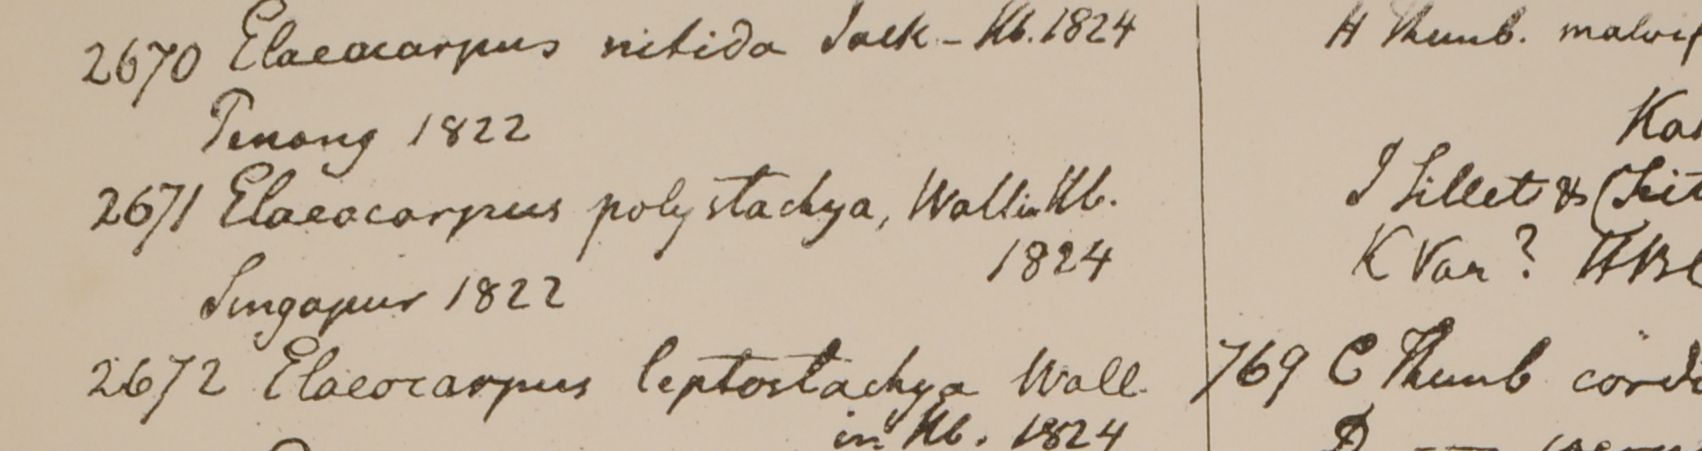 2670 Elaeocarpus nitida Jack - Hb. 1824
Penang 1822
2671 Elaeocarpus polystachya, Wall in Hb.
1824
Singapur 1822
2672 Elaeocarpus leptostachya Wall
in Hb. 1824
H Thunb.
I Sillet &
K Var?
769 C Thunb